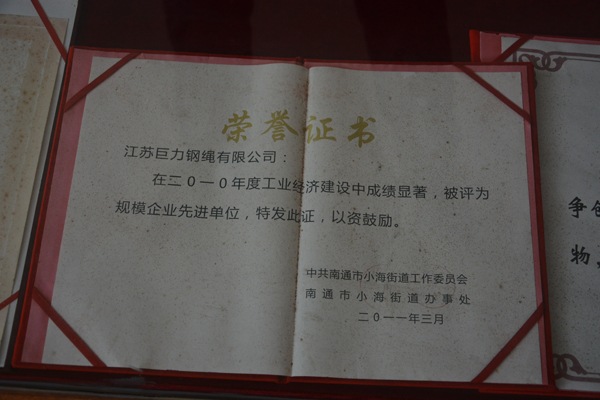 荣誉证书
江苏巨力钢绳有限公司：
在二０一０年度工业经济建设中成绩显著，被评为
规模企业先进单位，特发此证，以资鼓励。
中共南通市小海街道工作委员会
南通市小海街道办事处
二０一一年三月
争创
物，